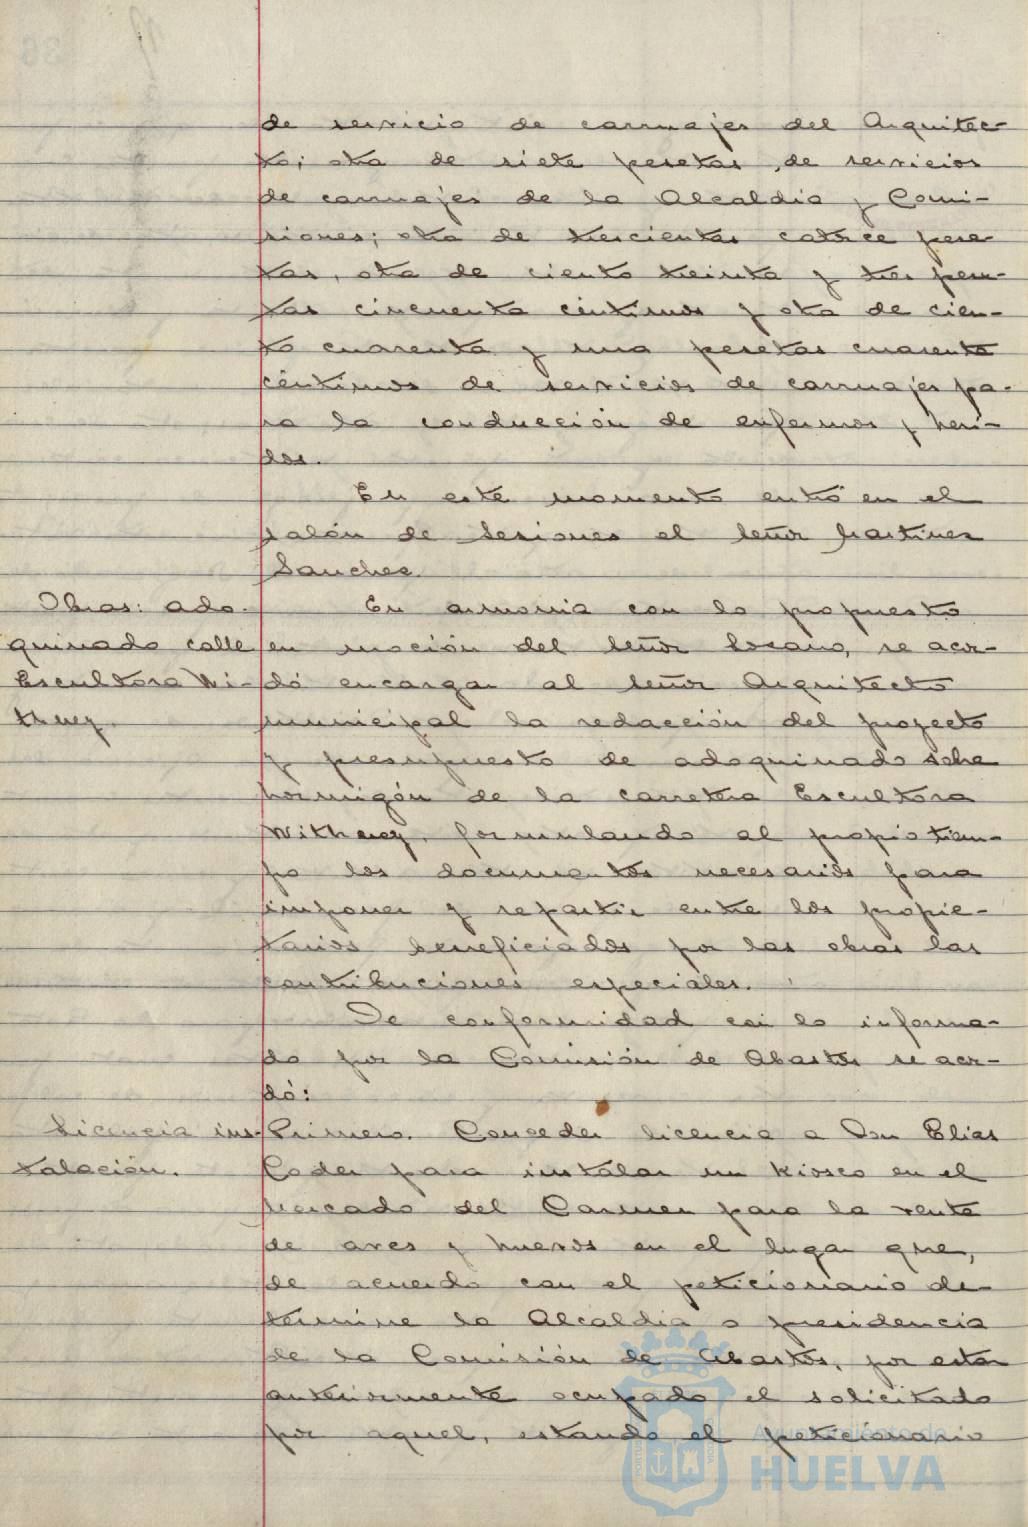 de servicio de carruajes del Arquitec-
to; otra de siete pesetas, de servicios
de carruajes de la Alcaldia y Comi-
siones; otra de trescientas catorce pese-
tas, otra de ciento treinta y tres pese-
tas cincuenta céntimos y otra de cien-
to cuarenta y una pesetas cuarenta
céntimos de servicios de carruajes pa-
ra la conducción de enfermos y heri-
dos.
En este momento entró en el
salón de Sesiones el señor Martinez
Sanchez.
Obras: ado-
quinado calle
Escultora Wi-
thney.
En armonia con lo propuesto
en moción del señor Lozano, se acor-
dó encargar al señor Arquitecto
municipal la redacción del proyecto
y presupuesto de adoquinado sobre
hormigón de la carretera Escultora
Withney, formulando al propio tiem-
po los documentos necesarios para
imponer y repartir entre los propie-
tarios beneficiados por las obras las
contribuciones especiales.
De conformidad con lo informa-
do por la Comisión de Abastos se acor-
dó:
Licencia ins-
talación.
Primero. Conceder licencia a Don Elias
Coder para instalar un kiosco en el
Mercado del Carmen para la venta
de aves y huevos en el lugar que,
de acuerdo con el peticionario de-
termine la Alcaldia o presidencia
de la Comisión de Abastos, por estar
anteriormente ocupado el solicitado
por aquel, estando el peticionario
Ayuntamiento de
HUELVA